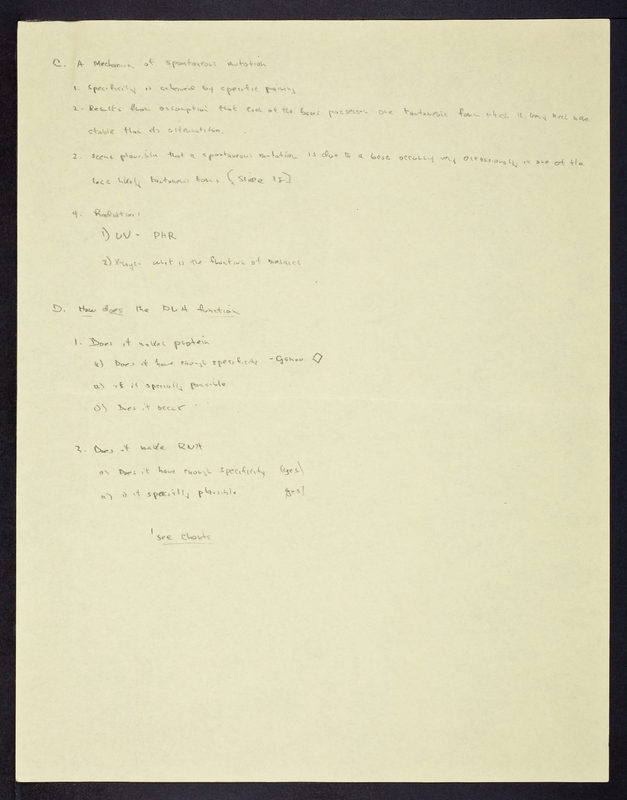 C. A Mechanism of spontaneous mutation
1. Specificity is achieved by specific pairing
2. Results from assumption that each of the bases possesses one tautomeric form which is very much more
stable than its alternatives.
3. Seems plausible that a spontaneous mutation is due to a base occurring very occasionally in one of the
less likely tautomeric forms (Slide 12)
4. Radiation:
1) UV - PHR
2) X-rays what is the function of
D. How does the DNA function
1. Does it make protein
a) Does it have enough specificity - Gamow ◇
a) if it spacially possible
b) Does it occur
2. Does it make RNA
a) Does it have enough specificity (yes)
a) is it spacially plausible yes)
see charts